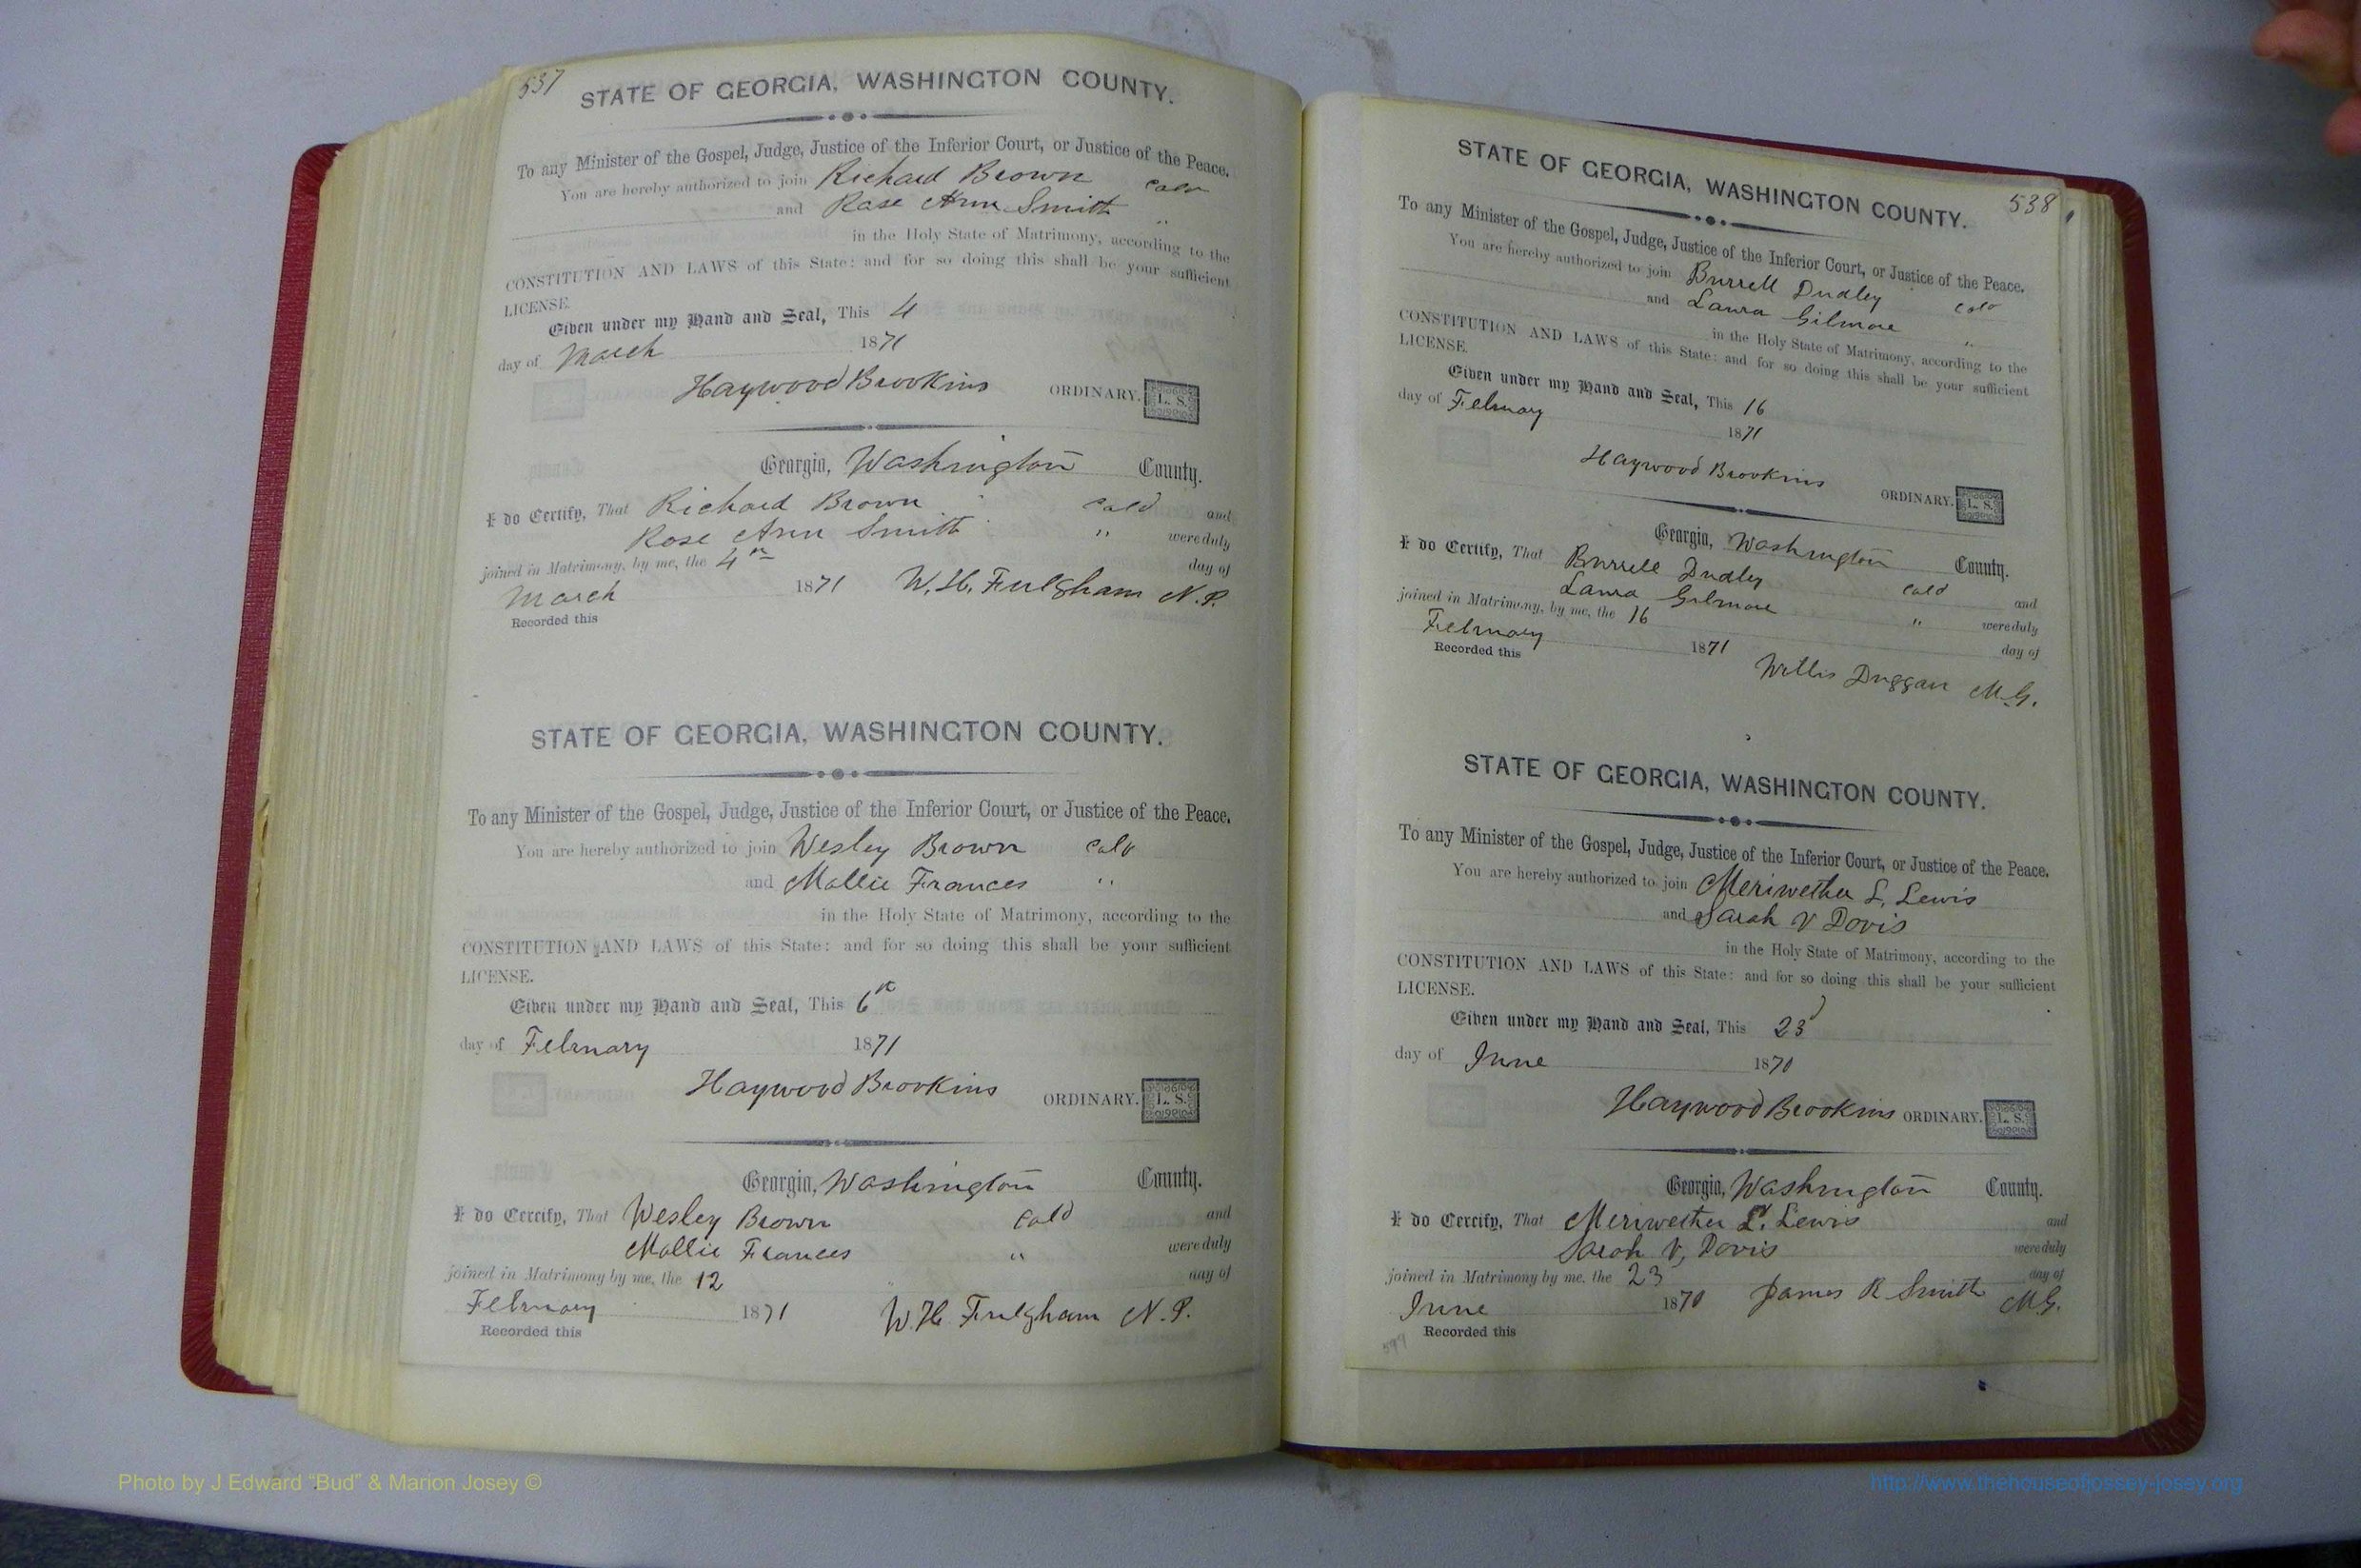 537
STATE OF GEORGIA, WASHINGTON COUNTY.
To any Minister of the Gospel, Judge, Justice of the Inferior Court, or Justice of the Peace.
You are hereby authorized to join Richard Brown Cold
and Rose Ann Smith "
in the Holy State of Matrimony, according to the
CONSTITUTION AND LAWS of this State: and for so doing this shall be your sufficient
LICENSE.
Given under my Hand and Seal, This 4
day of March 1871
Haywood Brookins ORDINARY. L. S.
Georgia, Washington County.
I do Certify, That Richard Brown Cold and
Rose Ann Smith " were duly
joined in Matrimony, by me, the 4th day of
March 1871 W. H. Fulgham N. P.
Recorded this
STATE OF GEORGIA, WASHINGTON COUNTY.
To any Minister of the Gospel, Judge, Justice of the Inferior Court, or Justice of the Peace.
You are hereby authorized to join Wesley Brown Cold
and Mollie Frances "
in the Holy State of Matrimony, according to the
CONSTITUTION AND LAWS of this State: and for so doing this shall be your sufficient
LICENSE.
Given under my Hand and Seal, This 6th
day of February 1871
Haywood Brookins ORDINARY. L. S.
Georgia, Washington County.
I do Certify, That Wesley Brown Cold and
Mollie Frances " were duly
joined in Matrimony by me, the 12 day of
February 1871 W. H. Fulgham N. P.
Recorded this
538
STATE OF GEORGIA, WASHINGTON COUNTY.
To any Minister of the Gospel, Judge, Justice of the Inferior Court, or Justice of the Peace.
You are hereby authorized to join Burrell Dudley Cold
and Laura Gilmore "
in the Holy State of Matrimony, according to the
CONSTITUTION AND LAWS of this State: and for so doing this shall be your sufficient
LICENSE.
Given under my Hand and Seal, This 16
day of February 1871
Haywood Brookins ORDINARY. L. S.
Georgia, Washington County.
I do Certify, That Burrell Dudley Cold and
Laura Gilmore " were duly
joined in Matrimony, by me, the 16 day of
February 1871
Recorded this Willis Duggan M. G.
STATE OF GEORGIA, WASHINGTON COUNTY.
To any Minister of the Gospel, Judge, Justice of the Inferior Court, or Justice of the Peace.
You are hereby authorized to join Meriwether L. Lewis
and Sarah V Davis
in the Holy State of Matrimony, according to the
CONSTITUTION AND LAWS of this State: and for so doing this shall be your sufficient
LICENSE.
Given under my Hand and Seal, This 23d
day of June 1870
Haywood Brookins ORDINARY. L. S.
Georgia, Washington County.
I do Certify, That Meriwether L. Lewis and
Sarah V, Davis were duly
joined in Matrimony by me, the 23 day of
June 1870 James R Smith M G.
Recorded this
Photo by J Edward “Bud” & Marion Josey ©
http://www.thehouseofjossey-josey.org